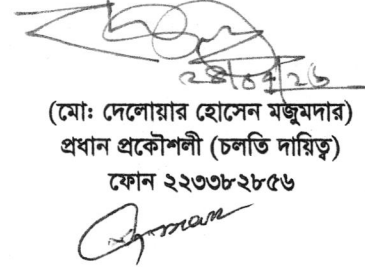 (মো: দেলোয়ার হোসেন মজুমদার)
প্রধান প্রকৌশলী (চলতি দায়িত্ব)
ফোন ২২৩৩৮২৮৫৬